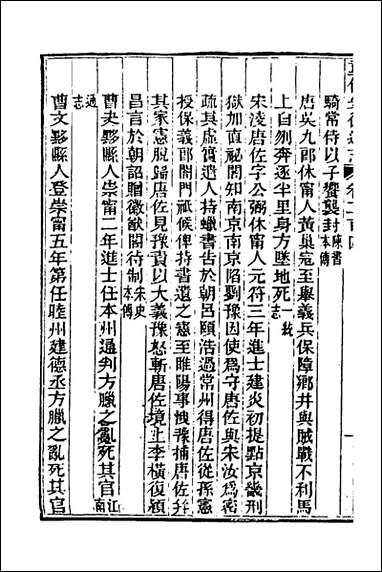 騎常侍以子饗襲封陳書本傳
唐吳九郎休甯人黃巢寇至舉義兵保障鄉井與賊戰不利馬
上自刎奔逐半里身方墜地死一統志
宋淩唐佐字公弼休甯人元符三年進士建炎初提點京畿刑
獄加直祕閣知南京南京陷劉豫因使爲守唐佐與朱汝爲密
疏其虛實遣人持蠟書告於朝呂頤浩過常州得唐佐從孫憲
授保義郎閤門祇候俾持書遺之憲至睢陽事洩豫捕唐佐幷
其家憲脫歸唐佐見豫責以大義豫怒斬唐佐境上李橫復潁
昌言於朝詔贈徽猷閣待制宋史本傳
曹史黟縣人崇甯二年進士任本州通判方臘之亂死其官江南
通志
曹文黟縣人登崇甯五年第任睦州建德丞方臘之亂死其官